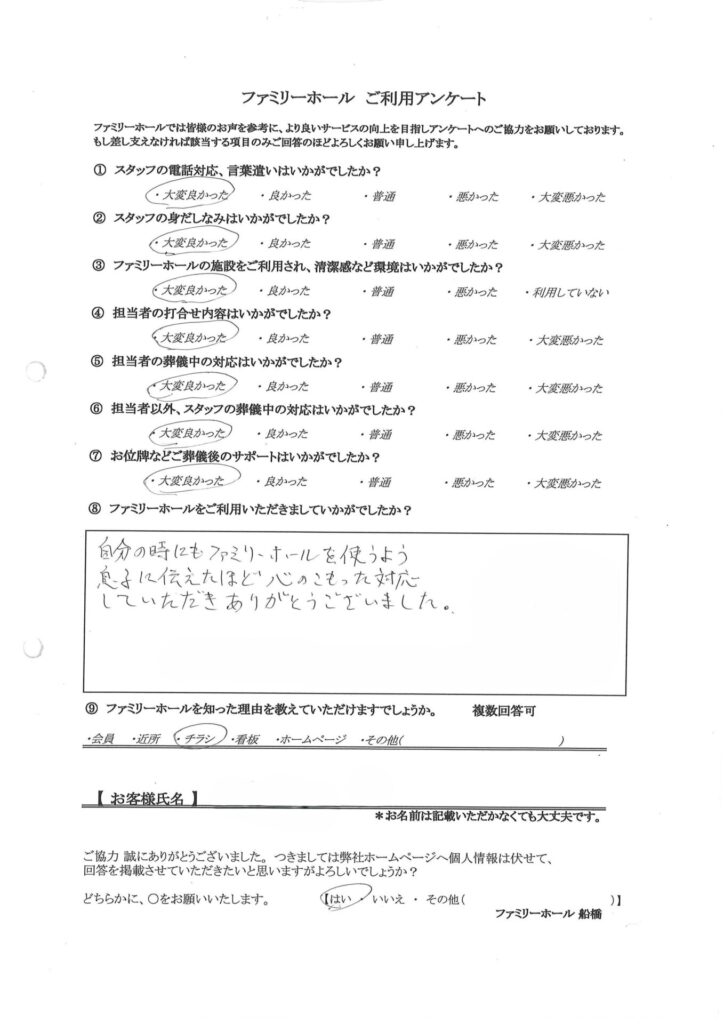 ファミリーホール ご利用アンケート
ファミリーホールでは皆様のお声を参考に、より良いサービスの向上を目指しアンケートへのご協力をお願いしております。
もし差し支えなければ該当する項目のみご回答のほどよろしくお願い申し上げます。
① スタッフの電話対応、言葉遣いはいかがでしたか？
・大変良かった ・良かった ・普通 ・悪かった ・大変悪かった
② スタッフの身だしなみはいかがでしたか？
・大変良かった ・良かった ・普通 ・悪かった ・大変悪かった
③ ファミリーホールの施設をご利用され、清潔感など環境はいかがでしたか？
・大変良かった ・良かった ・普通 ・悪かった ・利用していない
④ 担当者の打合せ内容はいかがでしたか？
・大変良かった ・良かった ・普通 ・悪かった ・大変悪かった
⑤ 担当者の葬儀中の対応はいかがでしたか？
・大変良かった ・良かった ・普通 ・悪かった ・大変悪かった
⑥ 担当者以外、スタッフの葬儀中の対応はいかがでしたか？
・大変良かった ・良かった ・普通 ・悪かった ・大変悪かった
⑦ お位牌などご葬儀後のサポートはいかがでしたか？
・大変良かった ・良かった ・普通 ・悪かった ・大変悪かった
⑧ ファミリーホールをご利用いただきましていかがでしたか？
自分の時にもファミリーホールを使うよう
息子に伝えたほど心のこもった対応
していただきありがとうございました。
⑨ ファミリーホールを知った理由を教えていただけますでしょうか。 複数回答可
・会員 ・近所 ・チラシ ・看板 ・ホームページ ・その他( )
【 お客様氏名 】
＊お名前は記載いただかなくても大丈夫です。
ご協力 誠にありがとうございました。つきましては弊社ホームページへ個人情報は伏せて、
回答を掲載させていただきたいと思いますがよろしいでしょうか？
どちらかに、〇をお願いいたします。 【はい ・ いいえ ・ その他( )】
ファミリーホール 船橋